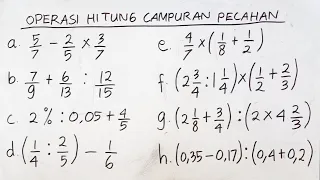 OPERASI HITUNG CAMPURAN PECAHAN
a. 5/7 - 2/5 × 3/7
b. 7/9 + 6/13 : 12/15
c. 2% : 0,05 + 4/5
d. (1/4 : 2/5) - 1/6
e. 4/7 × (1/8 + 1/2)
f. (2 3/4 : 1 1/4) × (1/2 + 2/3)
g. (2 1/8 + 3/4) : (2 × 4 2/3)
h. (0,35 - 0,17) : (0,4 + 0,2)